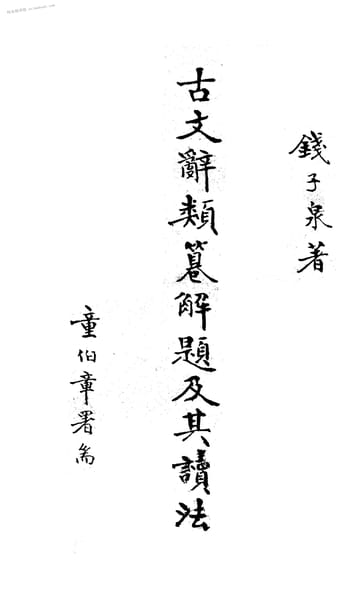 錢子泉著
古文辭類篹解題及其讀法
童伯章署耑